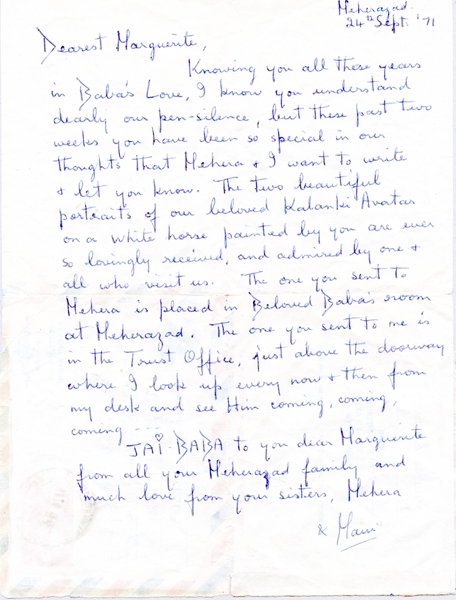 Meherazad.
24th Sept. '71
Dearest Marguerite,
Knowing you all these years
in Baba's Love, I know you understand
dearly our pen-silence, but these past two
weeks you have been so special in our
thoughts that Mehera & I want to write
& let you know. The two beautiful
portraits of our beloved Kalanki Avatar
on a white horse painted by you are ever
so lovingly received, and admired by one &
all who visit us. The one you sent to
Mehera is placed in Beloved Baba's room
at Meherazad. The one you sent to me is
in the Trust Office, just above the doorway
where I look up every now & then from
my desk and see Him coming, coming,
coming ---
JAI-BABA to you dear Marguerite
from all your Meherazad family and
much love from your sisters, Mehera
& Mani